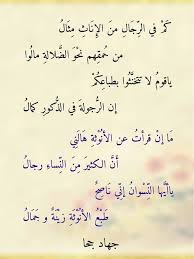 كَمْ في الرِّجَالِ منَ الإِنَاثِ مِثالُ
من حُمقِهم نحوَ الضَّلالةِ مالُوا
ياقومُ لا تتخنَّثُوا بطباعِكُمْ
إن الرُّجولةَ في الذُّكورِ كمالُ
مَا إنْ قرأتُ عنِ الأنُوثَةِ هَالَنِي
أنَّ الكثيرَ مِنَ النِّساءِ رِجالُ
ياأيُّها النِّسْوانُ إنِّي نَاصِحٌ
طَبْعُ الأنُوثَةِ زِينَةٌ وَ جَمَالُ
جهاد جحا